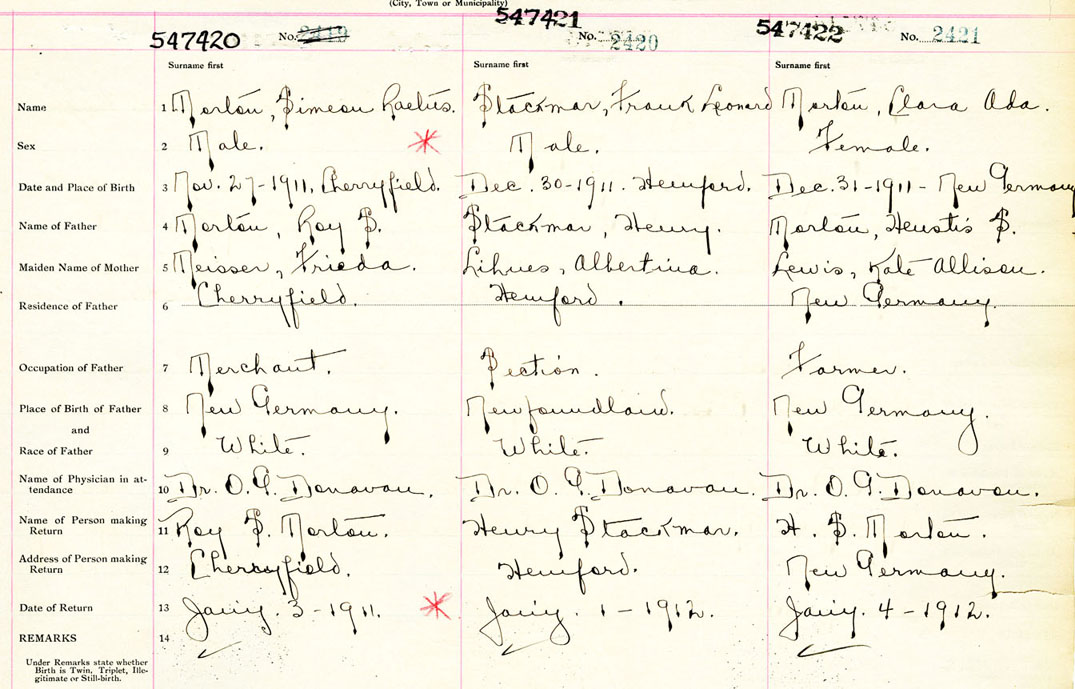 (City, Town or Municipality)
547420 No. 2419 547421 No. 2420 547422 No. 2421
Surname first Surname first Surname first
Name 1 Morton, Simeon Raelus. Stackmar, Frank Leonard Morton, Clara Ada.
Sex 2 Male. Male. Female.
Date and Place of Birth 3 Nov. 27-1911, Cherryfield. Dec. 30-1911. Hemford. Dec. 31-1911- New Germany
Name of Father 4 Morton, Roy S. Stackmar, Henry. Morton, Heustis S.
Maiden Name of Mother 5 Meisser, Frieda. Albertina. Lewis, Kate Allison.
Residence of Father 6 Cherryfield. Hemford. New Germany.
Occupation of Father 7 Merchant. Section. Farmer.
Place of Birth of Father 8 New Germany. Newfoundland. New Germany.
and
Race of Father 9 White. White. White.
Name of Physician in at-
tendance 10 Dr. O. G. Donavan. Dr. O. G. Donavan. Dr. O. G. Donavan.
Name of Person making
Return 11 Roy S. Morton. Henry Stackmar. H. S. Morton.
Address of Person making
Return 12 Cherryfield. Hemford. New Germany.
Date of Return 13 Jany. 3-1911. Jany. 1-1912. Jany. 4-1912.
REMARKS 14
Under Remarks state whether
Birth is Twin, Triplet, Ille-
gitimate or Still-birth.